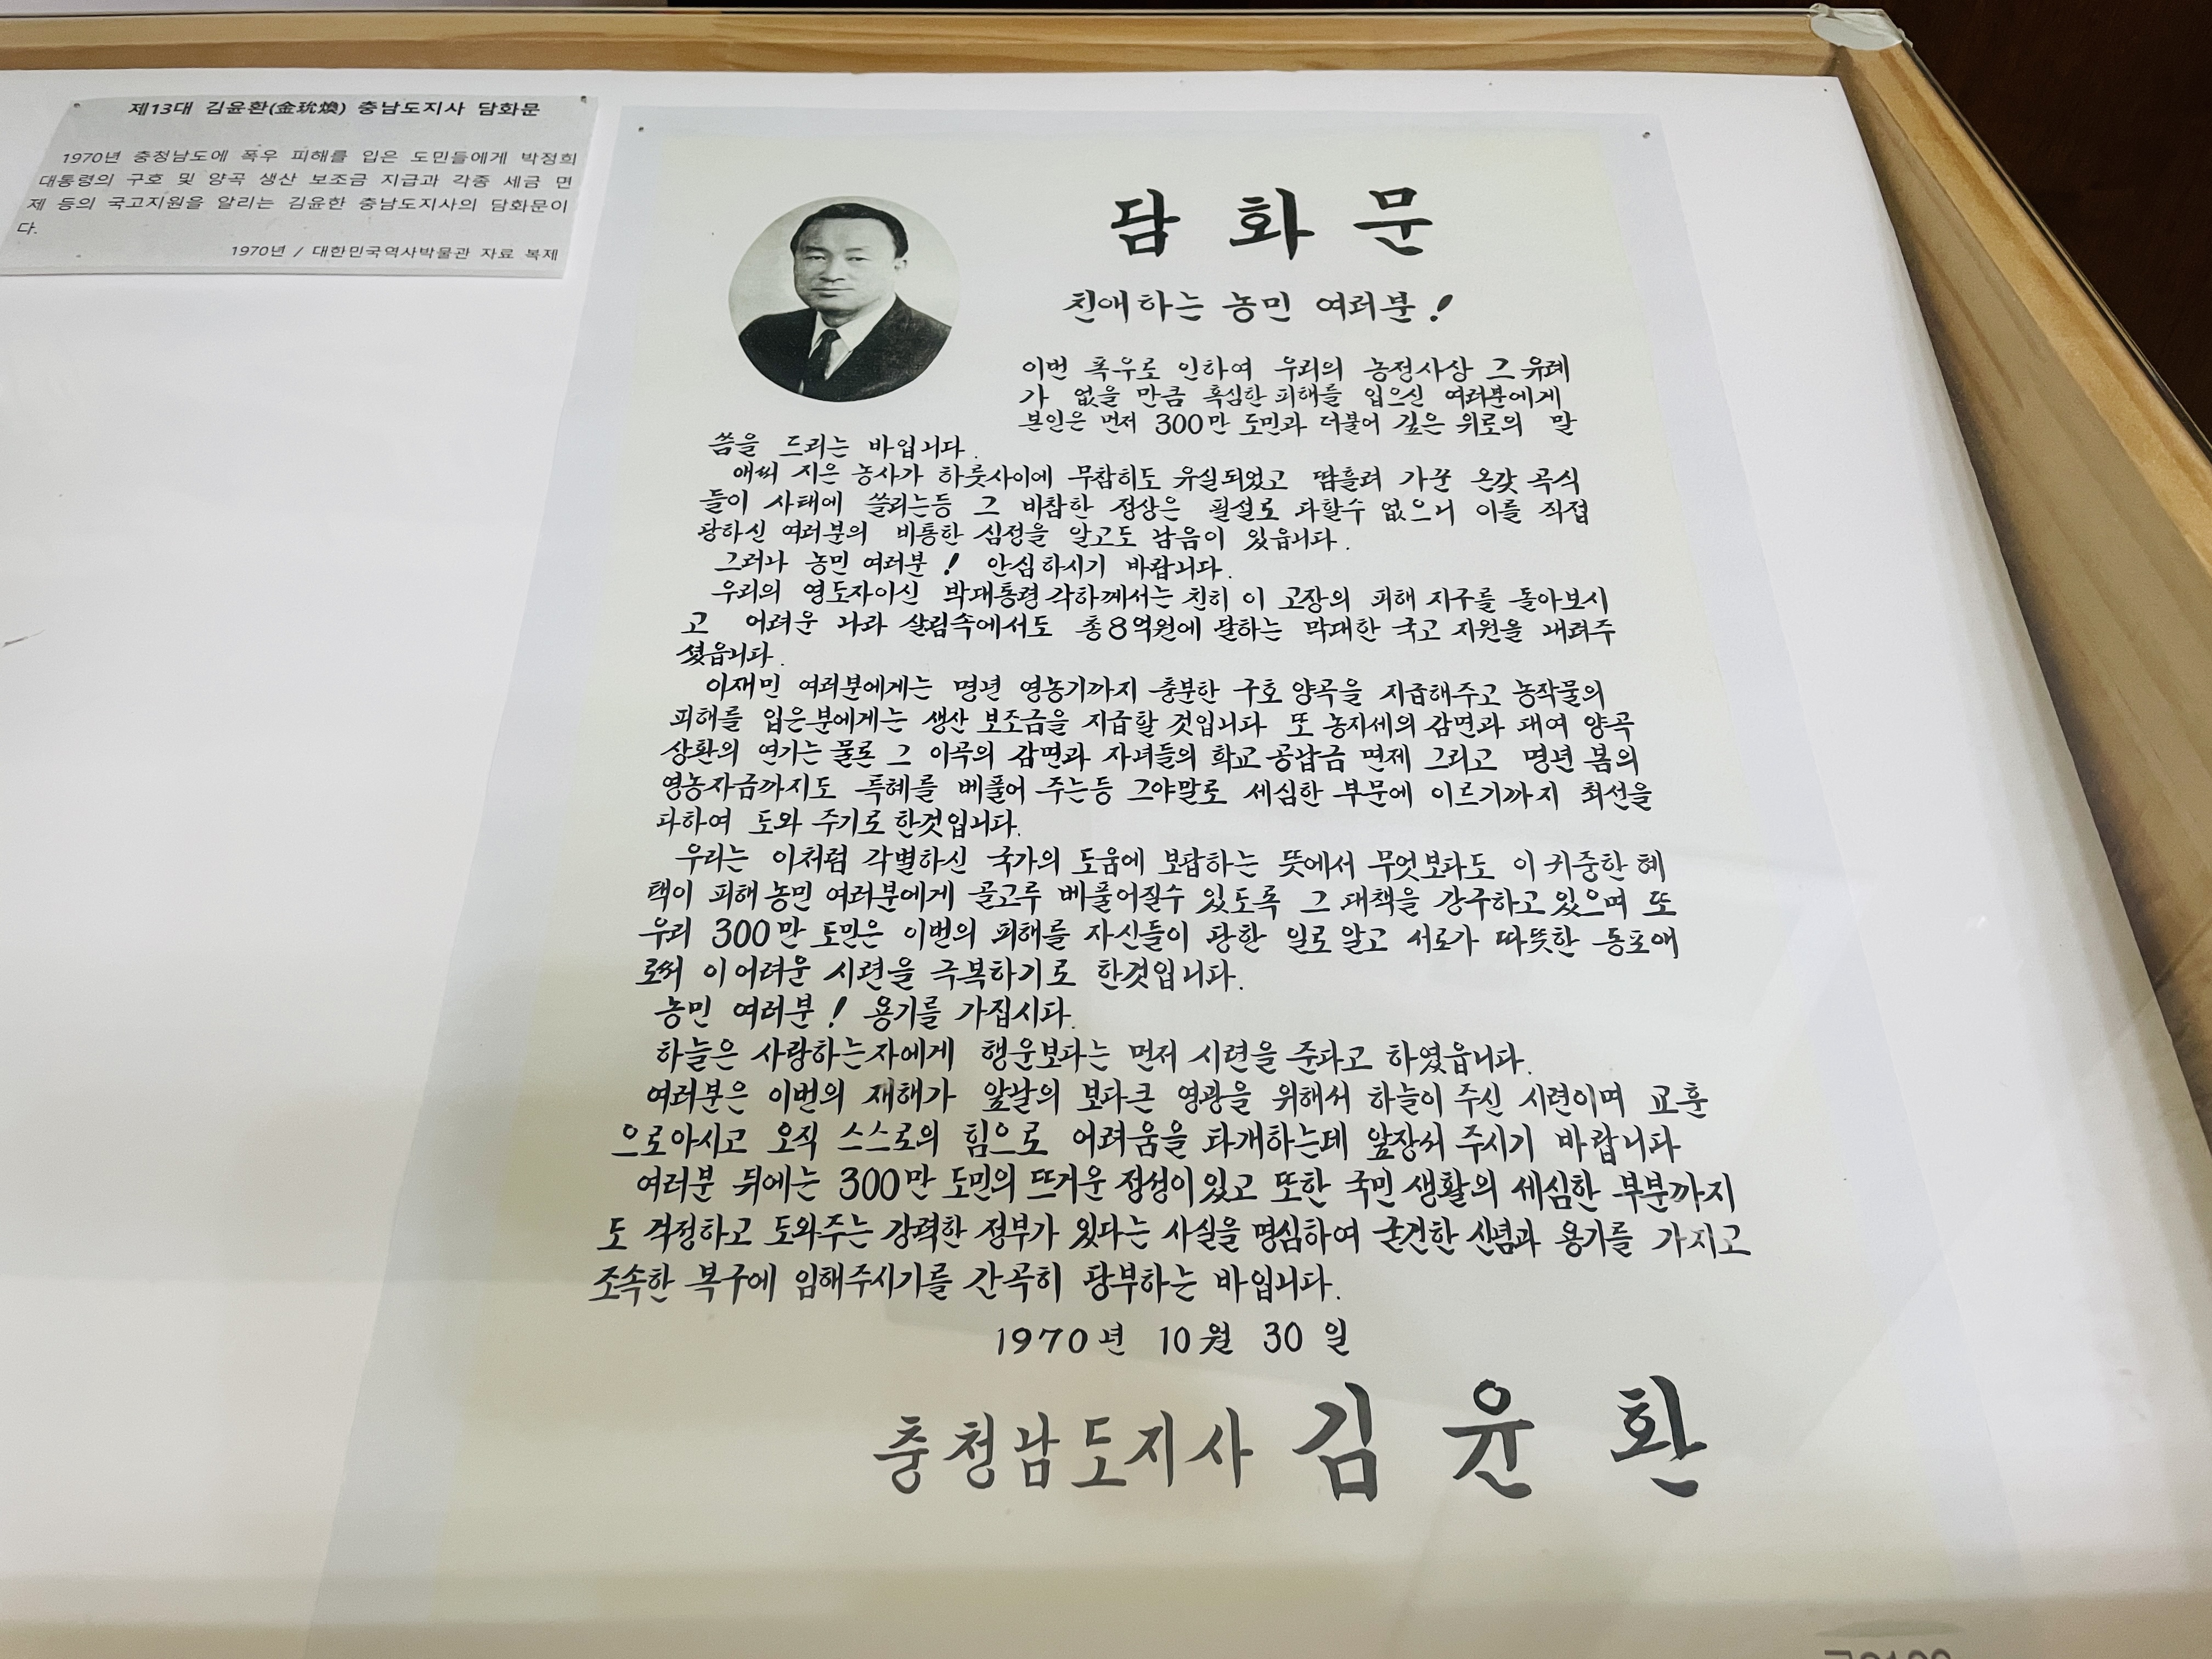 제13대 김윤환(金玧煥) 충남도지사 담화문
1970년 충청남도에 폭우 피해를 입은 도민들에게 박정희
대통령의 구호 및 양곡 생산 보조금 지급과 각종 세금 면
제 등의 국고지원을 알리는 김윤한 충남도지사의 담화문이
다.
1970년 / 대한민국역사박물관 자료 복제
담 화 문
친애하는 농민 여러분 !
이번 폭우로 인하여 우리의 농정사상 그 유례
가 없을 만큼 혹심한 피해를 입으신 여러분에게
본인은 먼저 300만 도민과 더불어 깊은 위로의 말
씀을 드리는 바입니다.
애써 지은 농사가 하룻사이에 무참히도 유실되었고 땀흘려 가꾼 온갖 곡식
들이 사태에 쓸리는등 그 비참한 정상은 필설로 다할수 없으니 이를 직접
당하신 여러분의 비통한 심정을 알고도 남음이 있읍니다.
그러나 농민 여러분 ! 안심하시기 바랍니다.
우리의 영도자이신 박대통령 각하께서는 친히 이 고장의 피해 지구를 돌아보시
고 어려운 나라 살림속에서도 총8억원에 달하는 막대한 국고 지원을 내려주
셨읍니다.
이재민 여러분에게는 명년 영농기까지 충분한 구호 양곡을 지급해주고 농작물의
피해를 입은분에게는 생산 보조금을 지급할 것입니다 또 농지세의 감면과 대여 양곡
상환의 연기는 물론 그 이곡의 감면과 자녀들의 학교 공납금 면제 그리고 명년 봄의
영농자금까지도 특혜를 베풀어 주는등 그야말로 세심한 부문에 이르기까지 최선을
다하여 도와 주기로 한것입니다.
우리는 이처럼 각별하신 국가의 도움에 보답하는 뜻에서 무엇보다도 이 귀중한 혜
택이 피해 농민 여러분에게 골고루 베풀어질수 있도록 그 대책을 강구하고 있으며 또
우리 300만 도민은 이번의 피해를 자신들이 당한 일로 알고 서로가 따뜻한 동포애
로써 이 어려운 시련을 극복하기로 한것입니다.
농민 여러분 ! 용기를 가집시다.
하늘은 사랑하는자에게 행운보다는 먼저 시련을 준다고 하였읍니다.
여러분은 이번의 재해가 앞날의 보다큰 영광을 위해서 하늘이 주신 시련이며 교훈
으로아시고 오직 스스로의 힘으로 어려움을 타개하는데 앞장서 주시기 바랍니다
여러분 뒤에는 300만 도민의 뜨거운 정성이 있고 또한 국민 생활의 세심한 부분까지
도 걱정하고 도와주는 강력한 정부가 있다는 사실을 명심하여 굳건한 신념과 용기를 가지고
조속한 복구에 임해주시기를 간곡히 당부하는 바입니다.
1970년 10월 30일
충청남도지사 김 윤 환